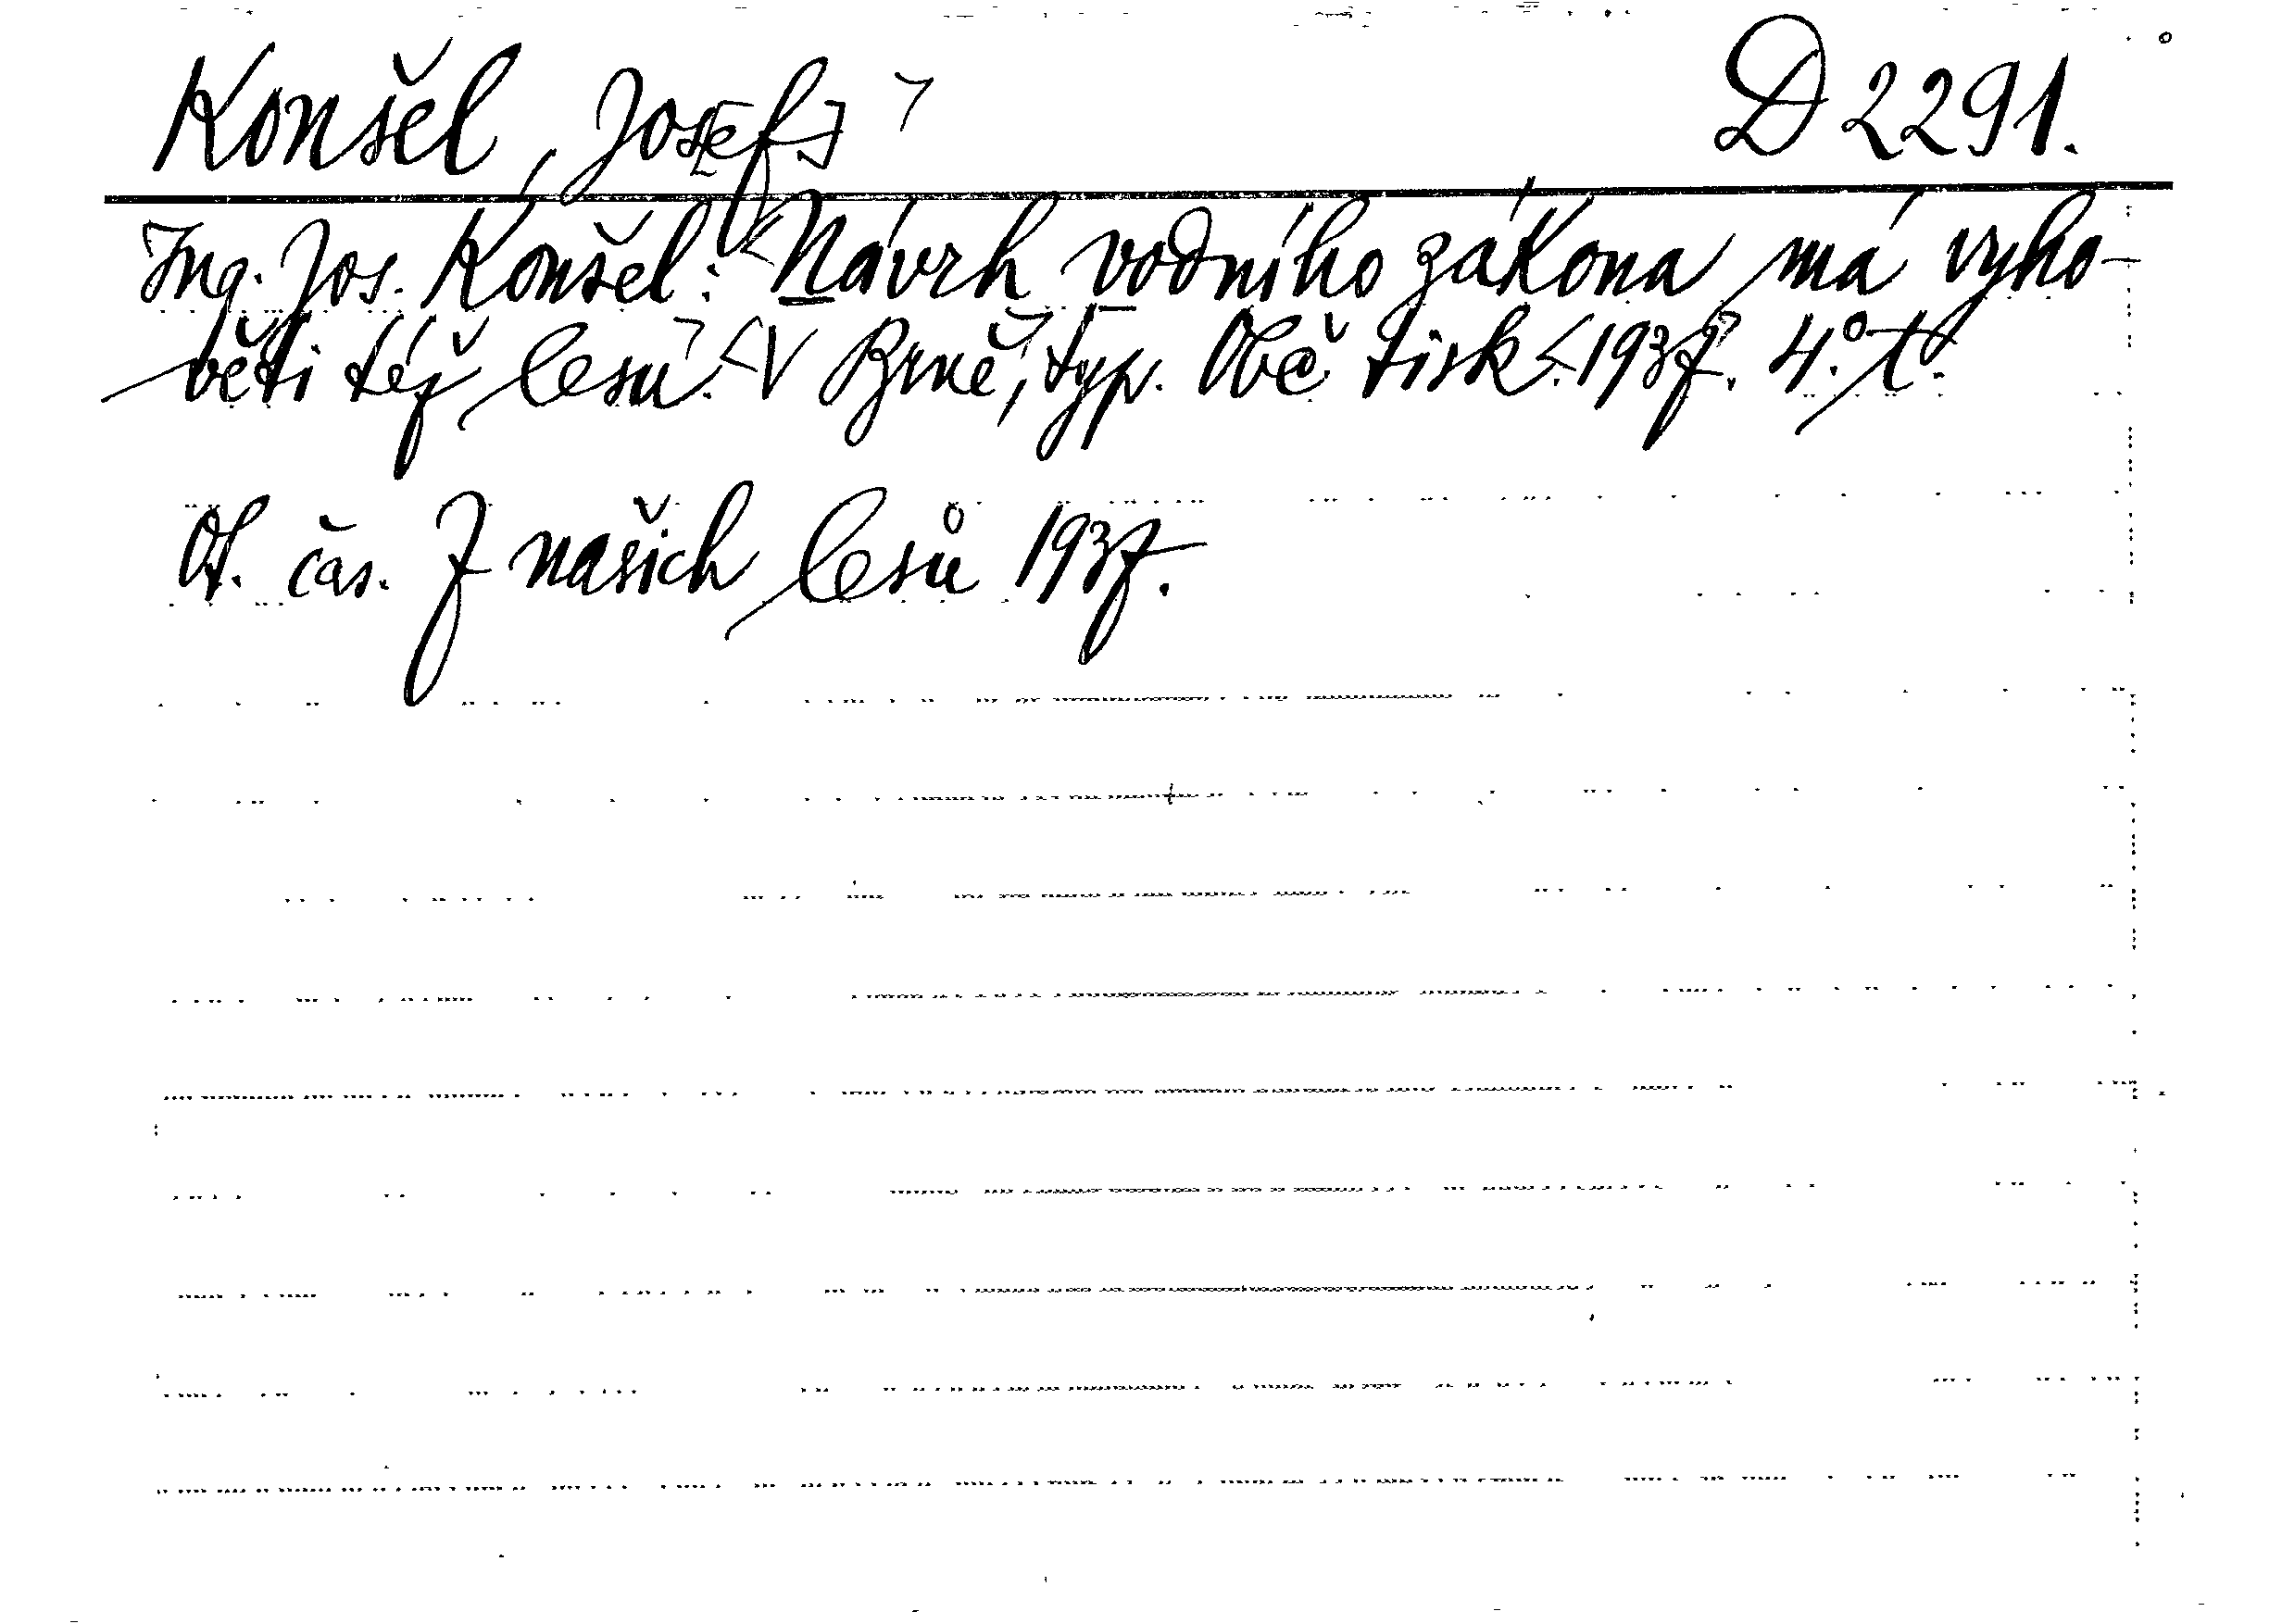 Konšel, Jos[ef] D 2291.
Ing. Jos. Konšel: Návrh vodního zákona má vyho-
věti též lesu. V Brně, typ. Obč. tisk. 1937. 4°.
Ot. čas. Z našich lesů 1937.